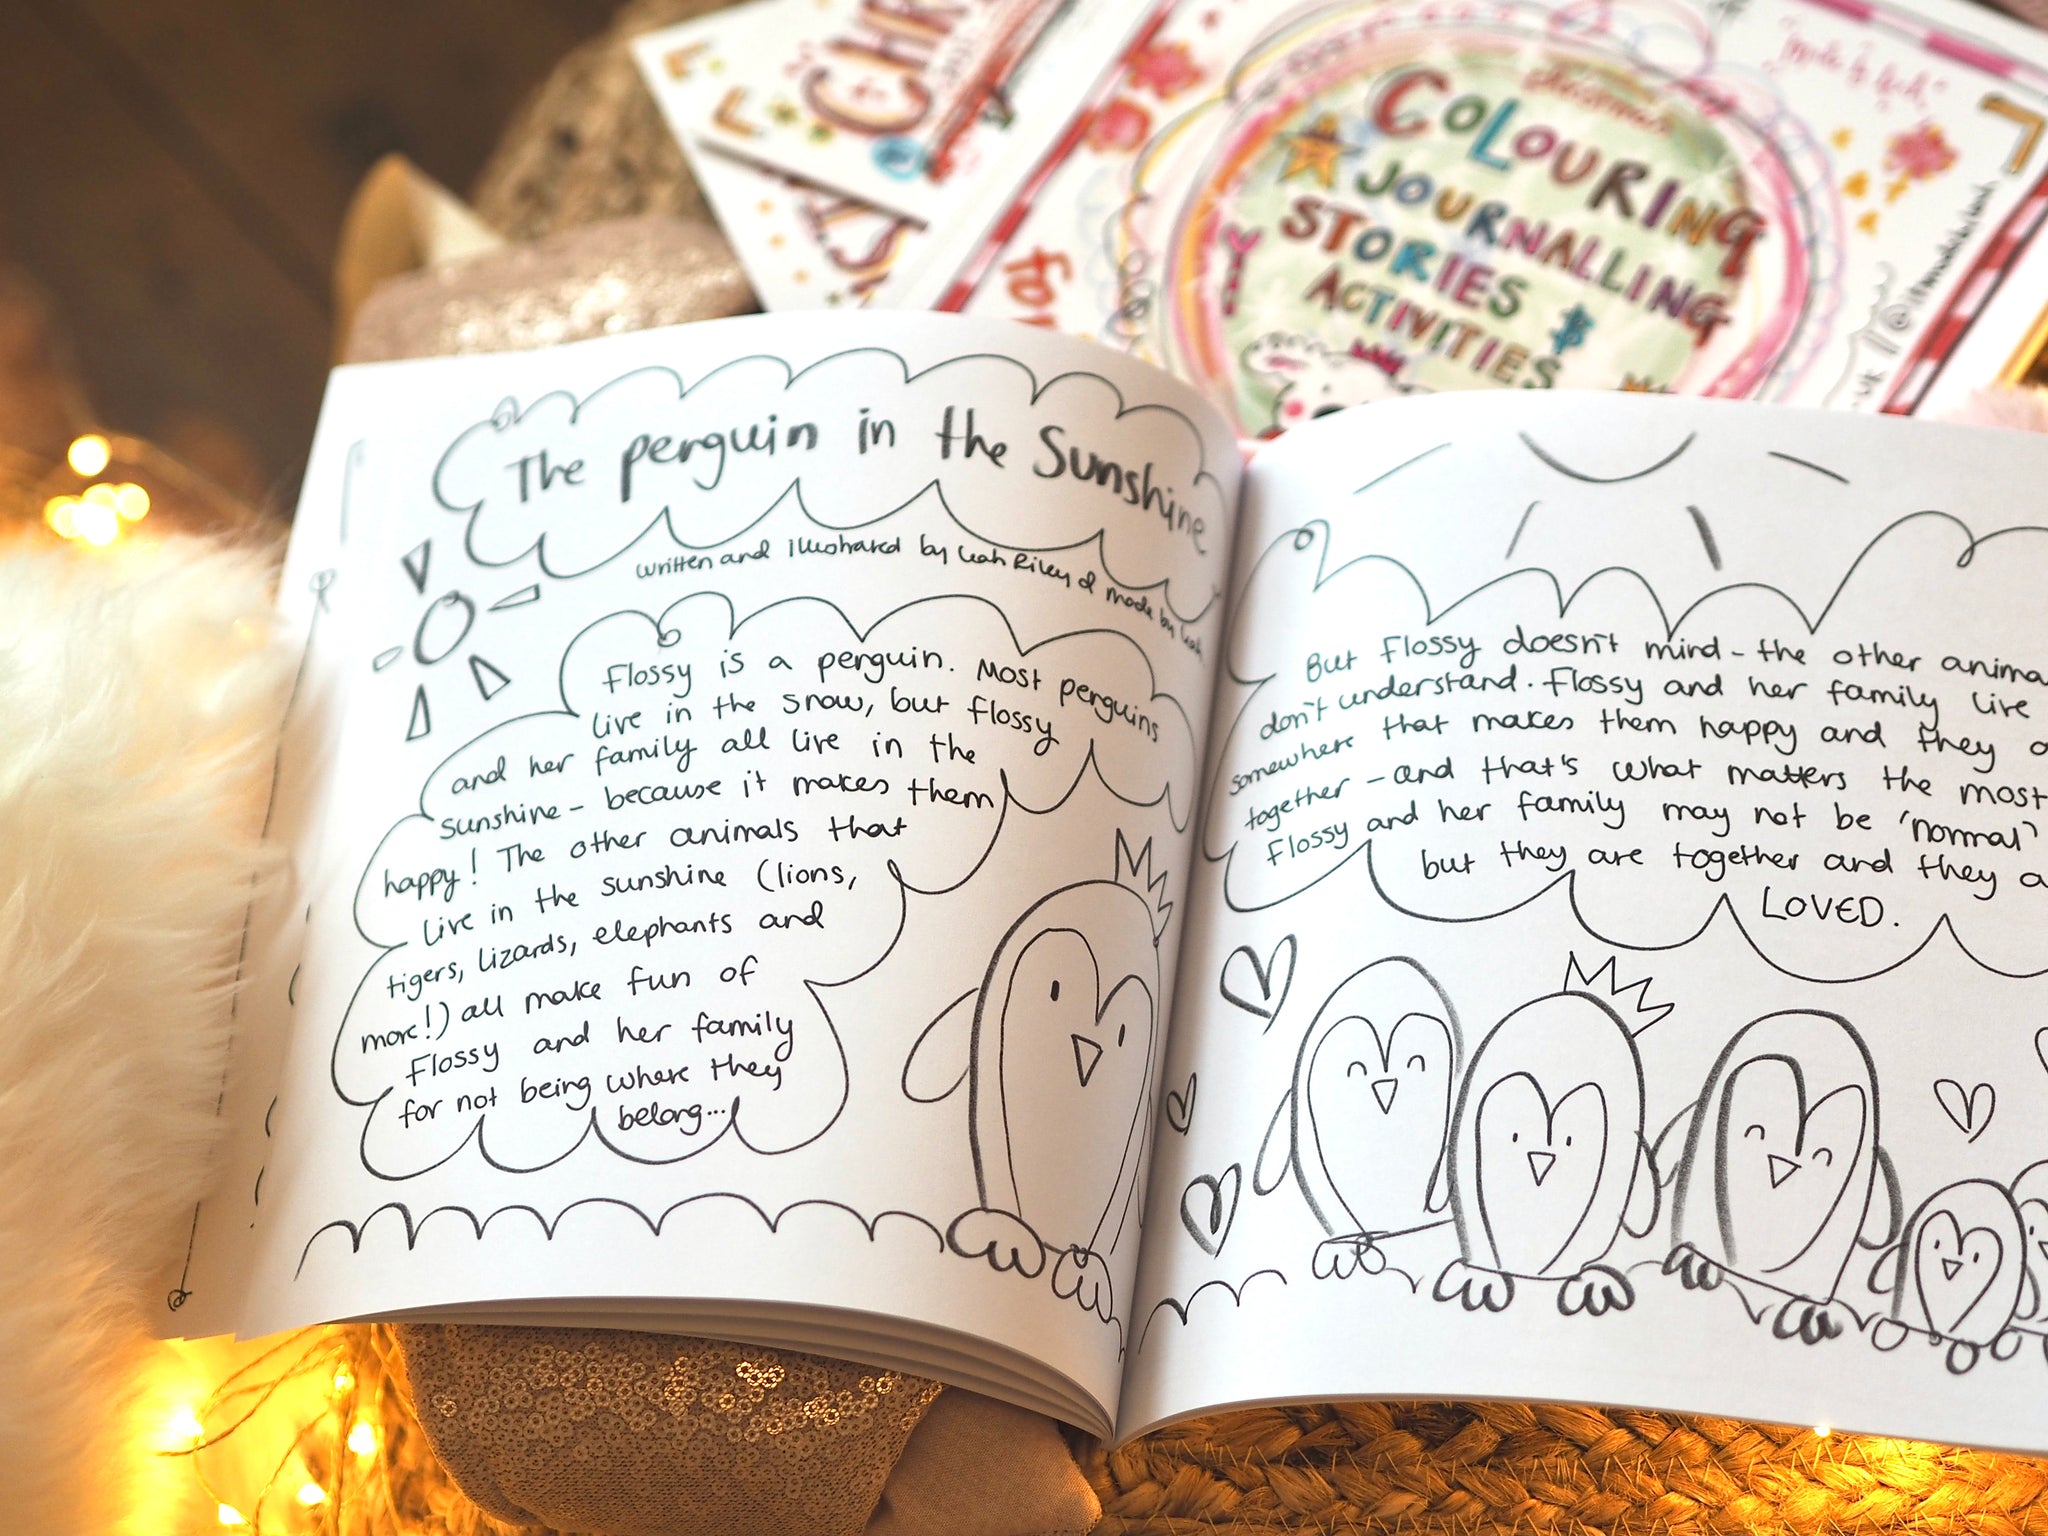 The penguin in the Sunshine
written and illustrated by Leah Riley & made by Leah
Flossy is a penguin. Most penguins
live in the snow, but Flossy
and her family all live in the
sunshine – because it makes them
happy! The other animals that
live in the sunshine (lions,
tigers, lizards, elephants and
more!) all make fun of
Flossy and her family
for not being where they
belong...
But Flossy doesn't mind – the other
don't understand. Flossy and her family live
somewhere that makes them happy and they
together – and that's what matters the most
Flossy and her family may not be 'normal'
but they are together and they
LOVED.
COLOURING
JOURNALLING
STORIES &
ACTIVITIES